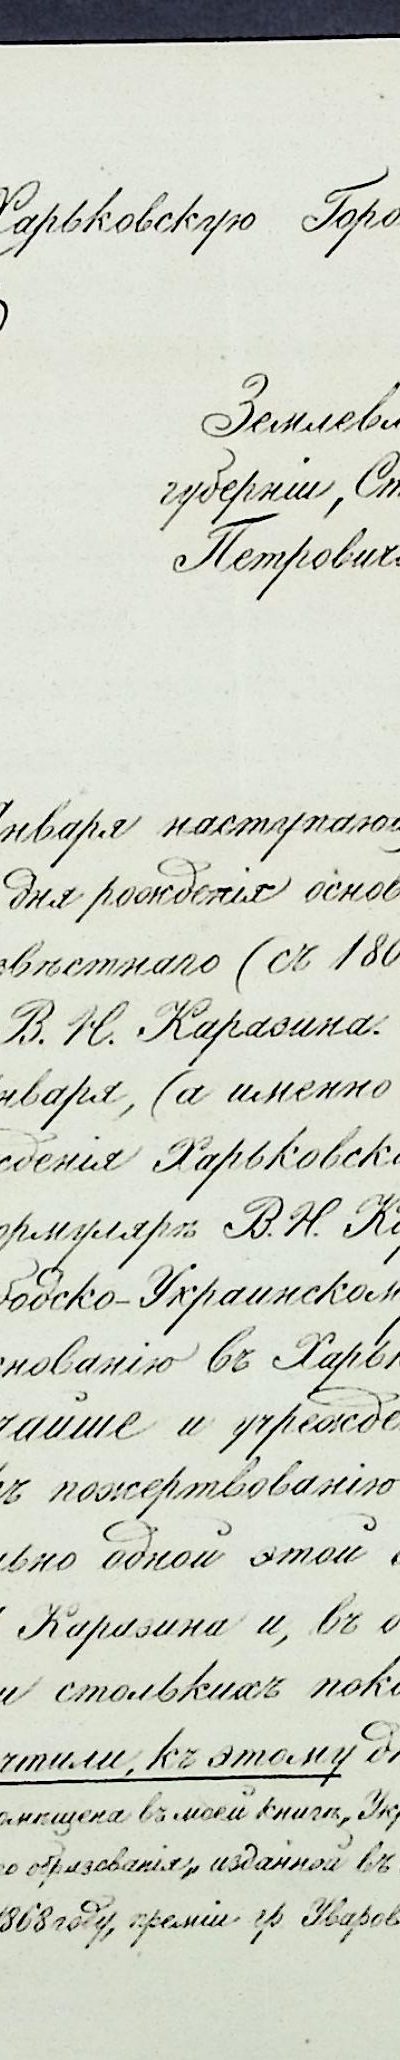 Харьковскую Горо
Землевл
губернiи, Ст
Петрович
Января наступающ
дня рожденiя основ
звѣстнаго (съ 180
В. Н. Каразина.
нваря, (а именно
жденiя Харьковск
ормулярѣ В. Н. Ка
бодско-Украинском
снованiю въ Харьк
чайше и учрежде
къ пожертвованiю
льно одной этой
Каразина и, въ о
и столькихъ поко
чтили, къ этому д
омѣщена въ моей книгѣ, „Укр
го образованiя„ изданной въ
1868 году, премiи гр Уваров